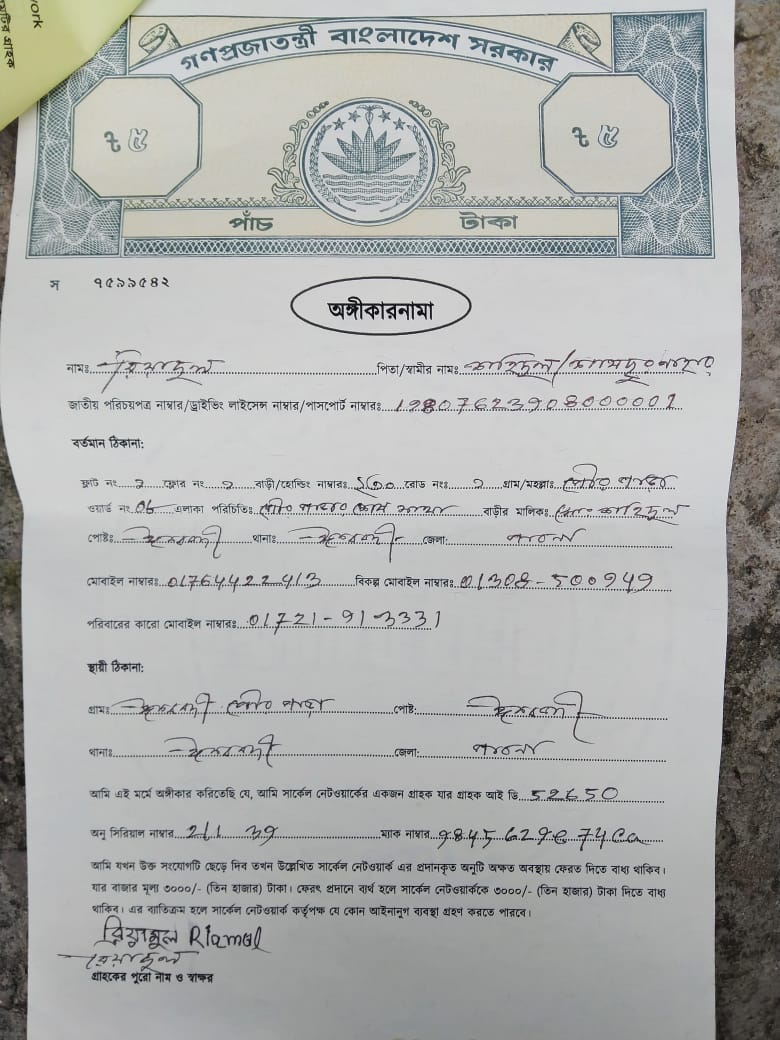 work
গণপ্রজাতন্ত্রী বাংলাদেশ সরকার
৳ ৫ ৳ ৫
পাঁচ টাকা
স ৭৫৯৯৫৪২
অঙ্গীকারনামা
নামঃ রিয়ামুল পিতা/স্বামীর নামঃ
জাতীয় পরিচয়পত্র নাম্বার/ড্রাইভিং লাইসেন্স নাম্বার/পাসপোর্ট নাম্বারঃ
বর্তমান ঠিকানা:
ফ্লাট নং ২ ফ্লোর নং ২ বাড়ী/হোল্ডিং নাম্বারঃ রোড নংঃ গ্রাম/মহল্লাঃ
ওয়ার্ড নং 06 এলাকা পরিচিতিঃ বাড়ীর মালিকঃ
পোষ্টঃ ঈশ্বরদী থানাঃ ঈশ্বরদী জেলা: পাবনা
মোবাইল নাম্বারঃ 01764422413 বিকল্প মোবাইল নাম্বারঃ 01308-500949
পরিবারের কারো মোবাইল নাম্বারঃ 01721-913331
স্থায়ী ঠিকানা:
গ্রামঃ ঈশ্বরদী পোষ্ট: ঈশ্বরদী
থানাঃ ঈশ্বরদী জেলা: পাবনা
আমি এই মর্মে অঙ্গীকার করিতেছি যে, আমি সার্কেল নেটওয়ার্কের একজন গ্রাহক যার গ্রাহক আই ডি 52650
অনু সিরিয়াল নাম্বার 2/1 39 ম্যাক নাম্বার 9845629e74ca
আমি যখন উক্ত সংযোগটি ছেড়ে দিব তখন উল্লেখিত সার্কেল নেটওয়ার্ক এর প্রদানকৃত অনুটি অক্ষত অবস্থায় ফেরত দিতে বাধ্য থাকিব।
যার বাজার মূল্য ৩০০০/- (তিন হাজার) টাকা। ফেরৎ প্রদানে ব্যর্থ হলে সার্কেল নেটওয়ার্ককে ৩০০০/- (তিন হাজার) টাকা দিতে বাধ্য
থাকিব। এর ব্যতিক্রম হলে সার্কেল নেটওয়ার্ক কর্তৃপক্ষ যে কোন আইনানুগ ব্যবস্থা গ্রহণ করতে পারবে।
রিয়ামুল Riamul
রিয়ামুল
গ্রাহকের পুরো নাম ও স্বাক্ষর